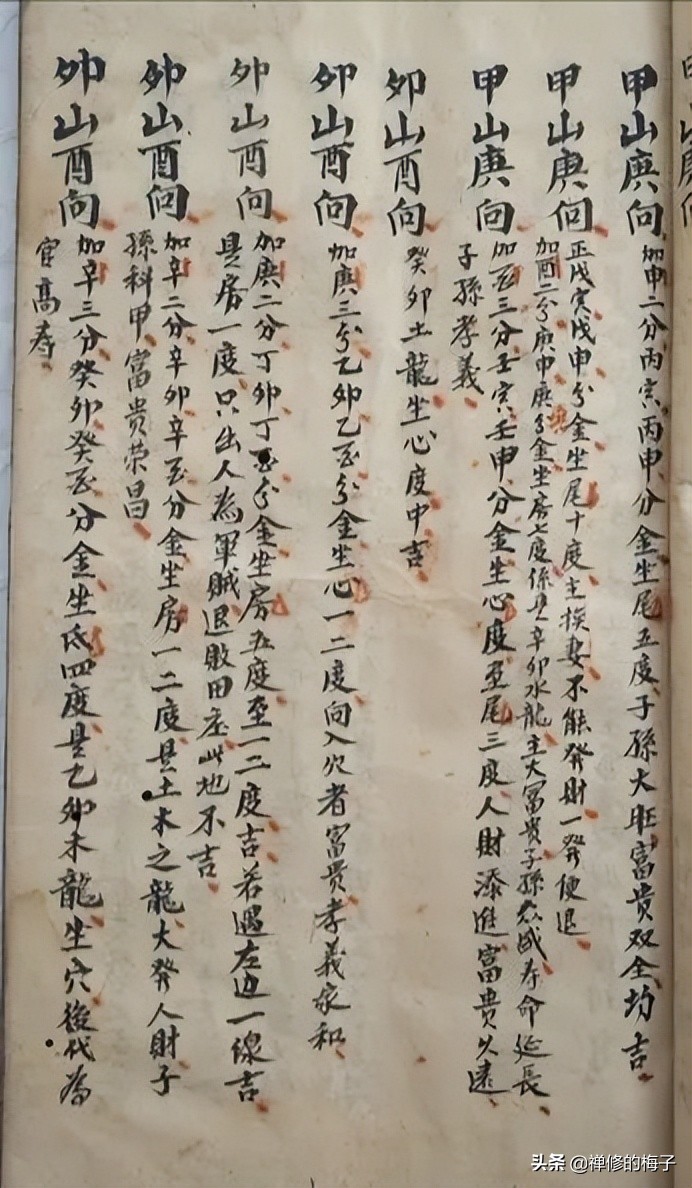 甲山庚向 加申二分丙寅丙申分金坐尾五度子孫大旺富貴双全均吉
甲山庚向 正戊寅戊申分金坐尾十度主换妻不能發財一發便退
加酉二分庚申庚分金坐房七度係是辛卯水龍主大富貴子孫成寿命延長
甲山庚向 加三分壬寅壬申分金坐心度至尾三度人財添進富貴久遠
子孫孝義
卯山酉向 癸卯土龍坐心度中吉
卯山酉向 加庚三分乙卯乙酉分金坐心一二度向入穴者富貴孝義家和
卯山酉向 加庚二分丁卯丁酉分金坐房五度至一二度吉若遇左边一線吉
是房一度只出人為軍賊退敗田庄此地不吉
卯山酉向 加辛二分辛卯辛酉分金坐房一二度是土木之龍大發人財子
孫科甲富貴荣昌
卯山酉向 加辛三分癸卯癸酉分金坐氐四度是乙卯木龍坐穴後代為
官高寿
头条 @禅修的梅子